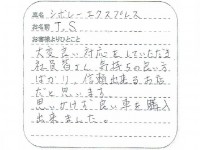 車名 シボレーエクスプレス
お名前 T.S
お客様よりひとこと
大変良い対応をしていただき
社員皆さん気持ちの良い方
ばかり。信頼出来るお店
だと思います。
思いがけず、良い車を購入
出来ました。